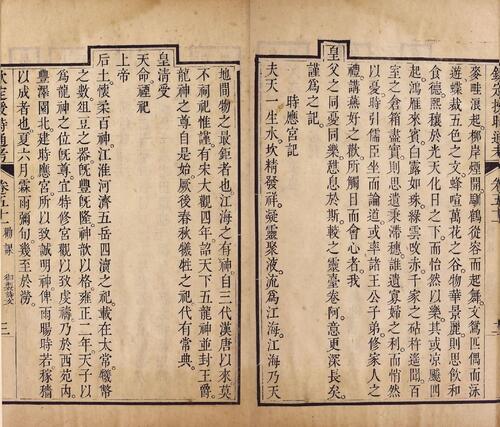 欽定授時通考
麥畦浪起柳岸煙開馴鶴從容而起舞文鴛匹偶而泳
遊蝶裁五色之文蜂喧萬花之谷物華景麗則思飲和
食德熙穰於光天化日之下而怡然以樂其或凉飈四
起鴻雁來賓白露如珠綠雲改赤千家之砧杵遙聞百
室之倉箱盡實則思遺秉滯穗誰遺寡婦之利而悄然
以憂時引儒臣坐而論道或率諸王公子弟修家人之
禮講燕好之歡所觸目而會心者我
皇父之同憂同樂憇息於斯較之靈臺卷阿意更深長矣
謹爲之記
時應宮記
夫天一生水坎精發祥凝靈聚液流爲江海江海乃天
地間物之最鉅者也江海之有神自三代漢唐以來莫
不祠祀惟謹有宋大觀四年詔天下五龍神並封王爵
龍神之尊自是始厥後春秋犧牲之祀代有常典
皇清受
天命禋祀
上帝
后土懷柔百神江淮河濟五岳四瀆之祀載在太常犧幣
之數俎豆之器旣豐旣隆神歆以格雍正二年天子以
爲龍神之位旣尊宜特修宮觀以致虔禱乃於西苑內
豐澤園北建時應宮所以致誠明神俾雨暘時若稼穡
以成者也夏六月霖雨彌旬幾至於澇
欽定授時通考 卷五十一 勸課 三